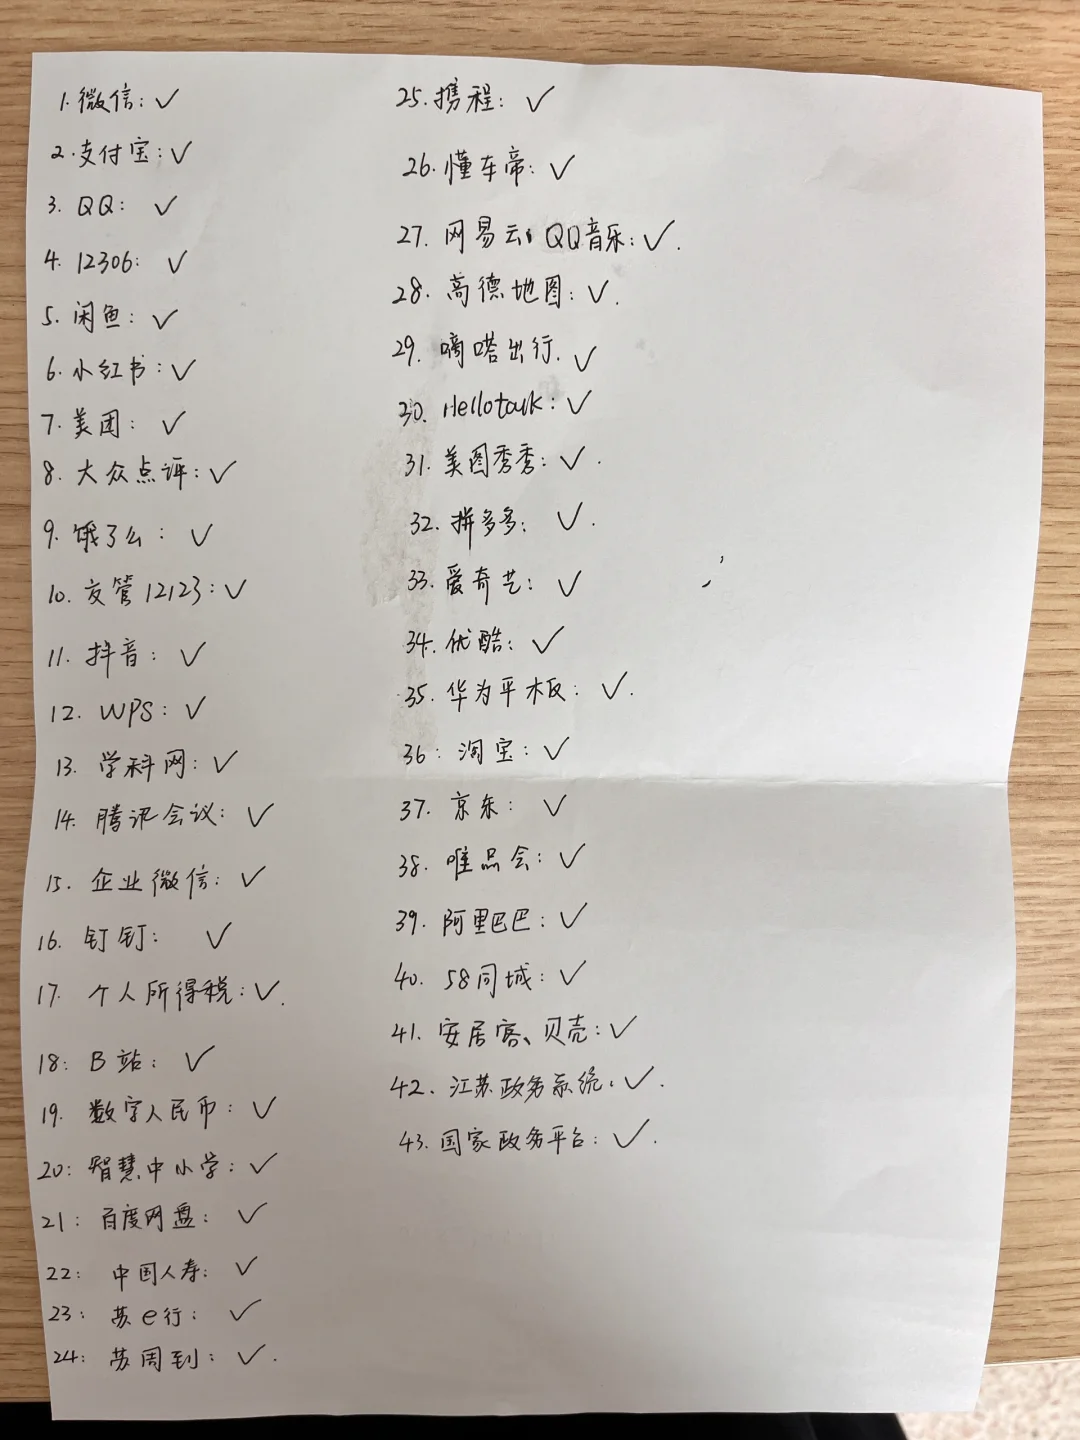 1. 微信: ✓
2. 支付宝: ✓
3. QQ: ✓
4. 12306: ✓
5. 闲鱼: ✓
6. 小红书: ✓
7. 美团: ✓
8. 大众点评: ✓
9. 饿了么: ✓
10. 交管12123: ✓
11. 抖音: ✓
12. WPS: ✓
13. 学科网: ✓
14. 腾讯会议: ✓
15. 企业微信: ✓
16. 钉钉: ✓
17. 个人所得税: ✓.
18: B站: ✓
19. 数字人民币: ✓
20: 智慧中小学: ✓
21: 百度网盘: ✓
22: 中国人寿: ✓
23: 苏e行: ✓
24: 苏周到: ✓.
25. 携程: ✓
26. 懂车帝: ✓
27. 网易云、QQ音乐: ✓.
28. 高德地图: ✓.
29. 嘀嗒出行. ✓
30. Hellotalk: ✓
31. 美图秀秀: ✓.
32. 拼多多: ✓.
33. 爱奇艺: ✓
34. 优酷: ✓
35. 华为平板: ✓.
36: 淘宝: ✓
37. 京东: ✓
38. 唯品会: ✓
39. 阿里巴巴: ✓
40. 58同城: ✓
41. 安居客、贝壳: ✓
42. 江苏政务系统: ✓.
43. 国家政务平台: ✓.